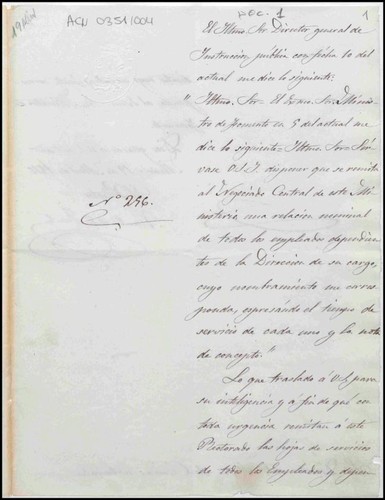 ACN 0351/004
DOC. 1
1
El Iltmo. Sr. Director general de
Instruccion pública con fecha 10 del
actual me dice lo siguiente:
" Iltmo. Sor.= El Excmo. Sr. Minis
tro de Fomento en 5 del actual me
dice lo siguiente= Iltmo. Sor= Sír-
vase V.S.I. disponer que se remita
al Negociado Central de este Mi-
nisterio, una relacion nominal
de todos los empleados dependien
tes de la Direccion de su cargo,
cuyo nombramiento me corres
ponda, expresando el tiempo de
servicio de cada uno y la nota
de concepto."
Nº 256.
Lo que traslado á V.S. para
su inteligencia y á fin de que con
toda urgencia remitan á este
Rectorado las hojas de servicios
de todos los empleados y depen